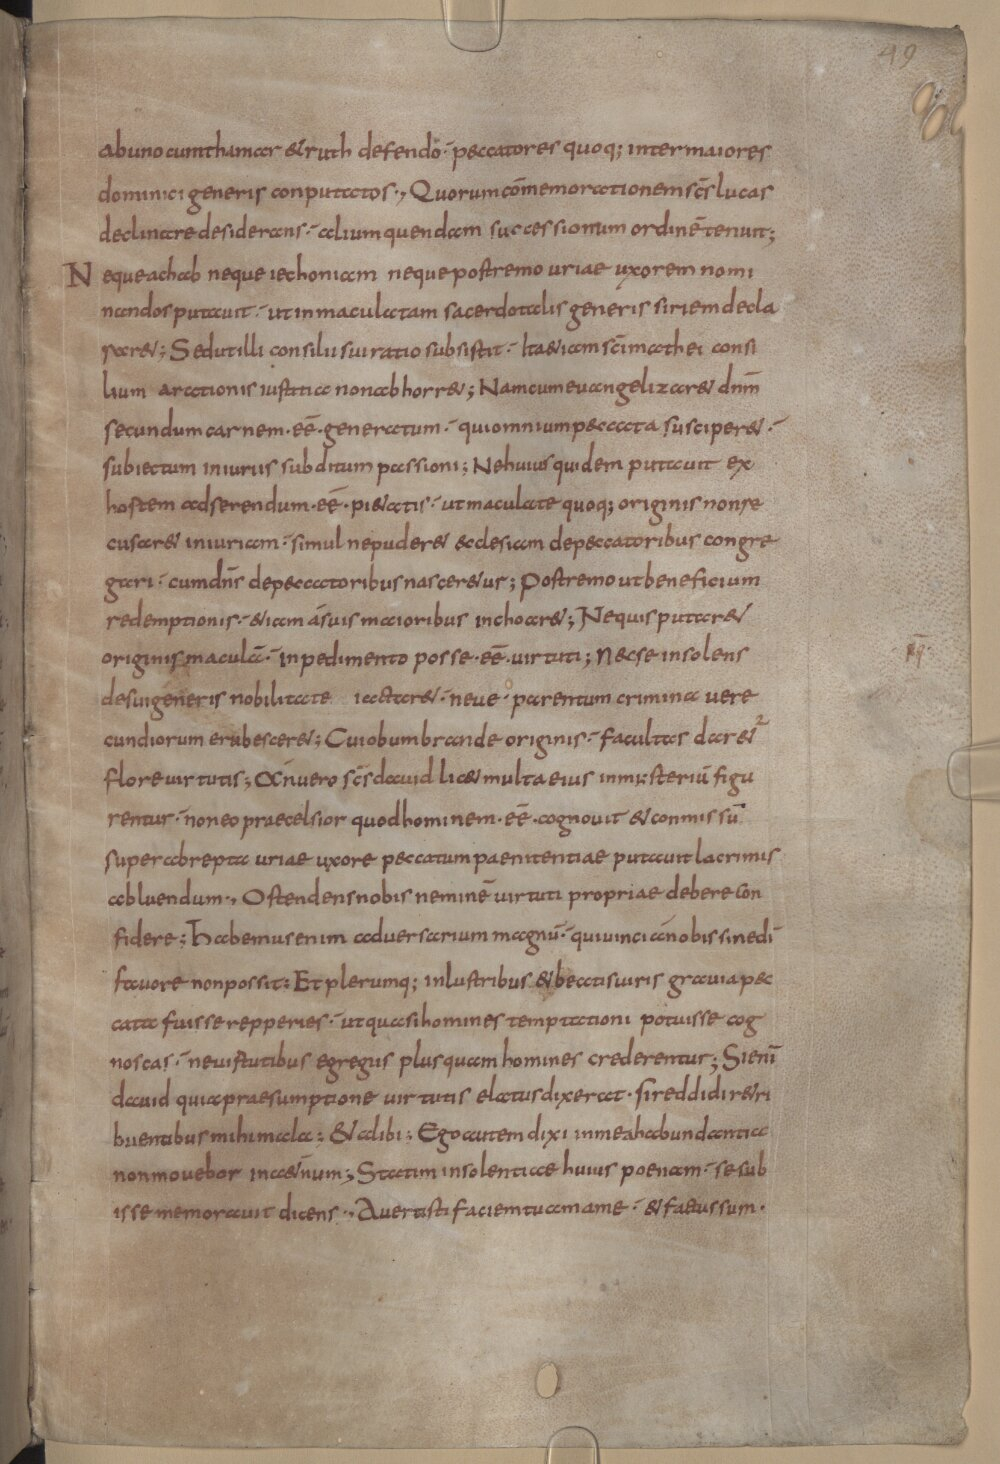 49
abuno cum thamar & ruth defendo· peccatores quoq; inter maiores
dominici generis conputatos·, Quorum cōmemorationem scs̄ lucas
declinare desiderans·- alium quendam successionum ordinē tenuit;
Neque achab neque iechoniam neque postremo uriae uxorem nomi
nandos putauit·- ut inmaculatam sacerdotalis generis siriem decla
rar&; Sed ut illi consilii sui ratio subsistit·- Ita &iam scī mathei consi
lium a ratione iustitiae non abhorr&; Nam cum euangelizar& dnm̄
secundum carnem· eē· generatum·- qui omnium peccata susciper&·-
subiectum iniuriis subditum passioni; Ne huius quidem putauit ex
hostem adserendum· eē· pi&atis·- ut maculate quoq; originis non re
cusar& iniuriam·- simul ne puder& aeclesiam de peccatoribus congre
gari·- cum dn̄s de peccatoribus nascer&ur; Postremo ut beneficium
redemptionis·- &iam á suis maioribus inchoar&; Ne quis putar&
originis maculā·- inpedimento posse· eē· uirtuti; Nec se insolens
de sui generis nobilitate iactar&·- neue· parentum crimina uere
cundiorum erubescer&; Cui obumbrande originis·- facultas dar&2
flore uirtutis; At uero scs̄ dauid lic& multa eius in mysteriū figu
rentur·- non eo praecelsior quod hominem· eē· cognouit & conmissū
super abrepta uriae uxore peccatum paenitentiae putauit lacrimis
abluendum·, Ostendens nobis neminē uirtuti propriae debere con
fidere; Habemus enim aduersarium magnū·- qui uinci á nobis sine dī
fauore non possit: Et plerumq; inlustribus & beatis uiris grauia pec
cata fuisse repperies·- ut quasi homines temptationi potuisse cog
noscas·- ne uirtutibus egregiis plus quam homines crederentur; Si enī
dauid quia praesumptione uirtutis elatus dixerat· si reddidi r&ri
buentibus mihi mala: & alibi: Ego autem dixi in mea habundantia
non mouebor in a&ernum; Statim insolentiae huius poenam·- se sub
isse memorauit dicens·, Auertisti faciem tuam a me·- & factus sum·